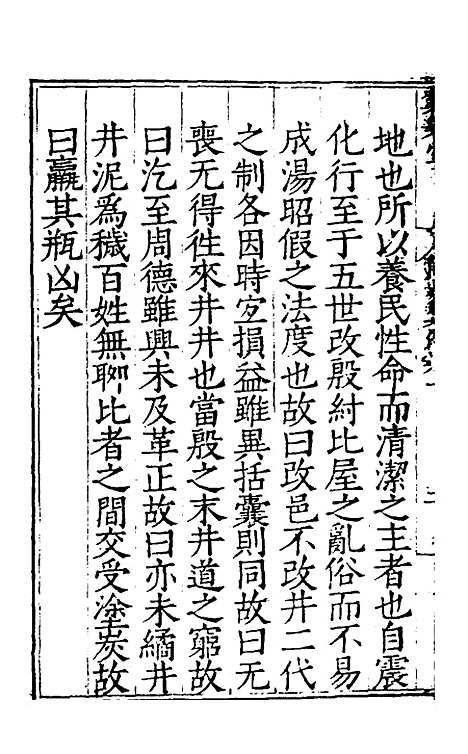 地也所以養民性命而清潔之主者也自震
化行至于五世改殷紂比屋之亂俗而不易
成湯昭假之法度也故曰改邑不改井二代
之制各因時宐損益雖異括囊則同故曰无
喪无得徃來井井也當殷之末井道之窮故
曰汔至周德雖興未及革正故曰亦未繘井
井泥為穢百姓無聊比者之間交受塗炭故
曰羸其瓶凶矣